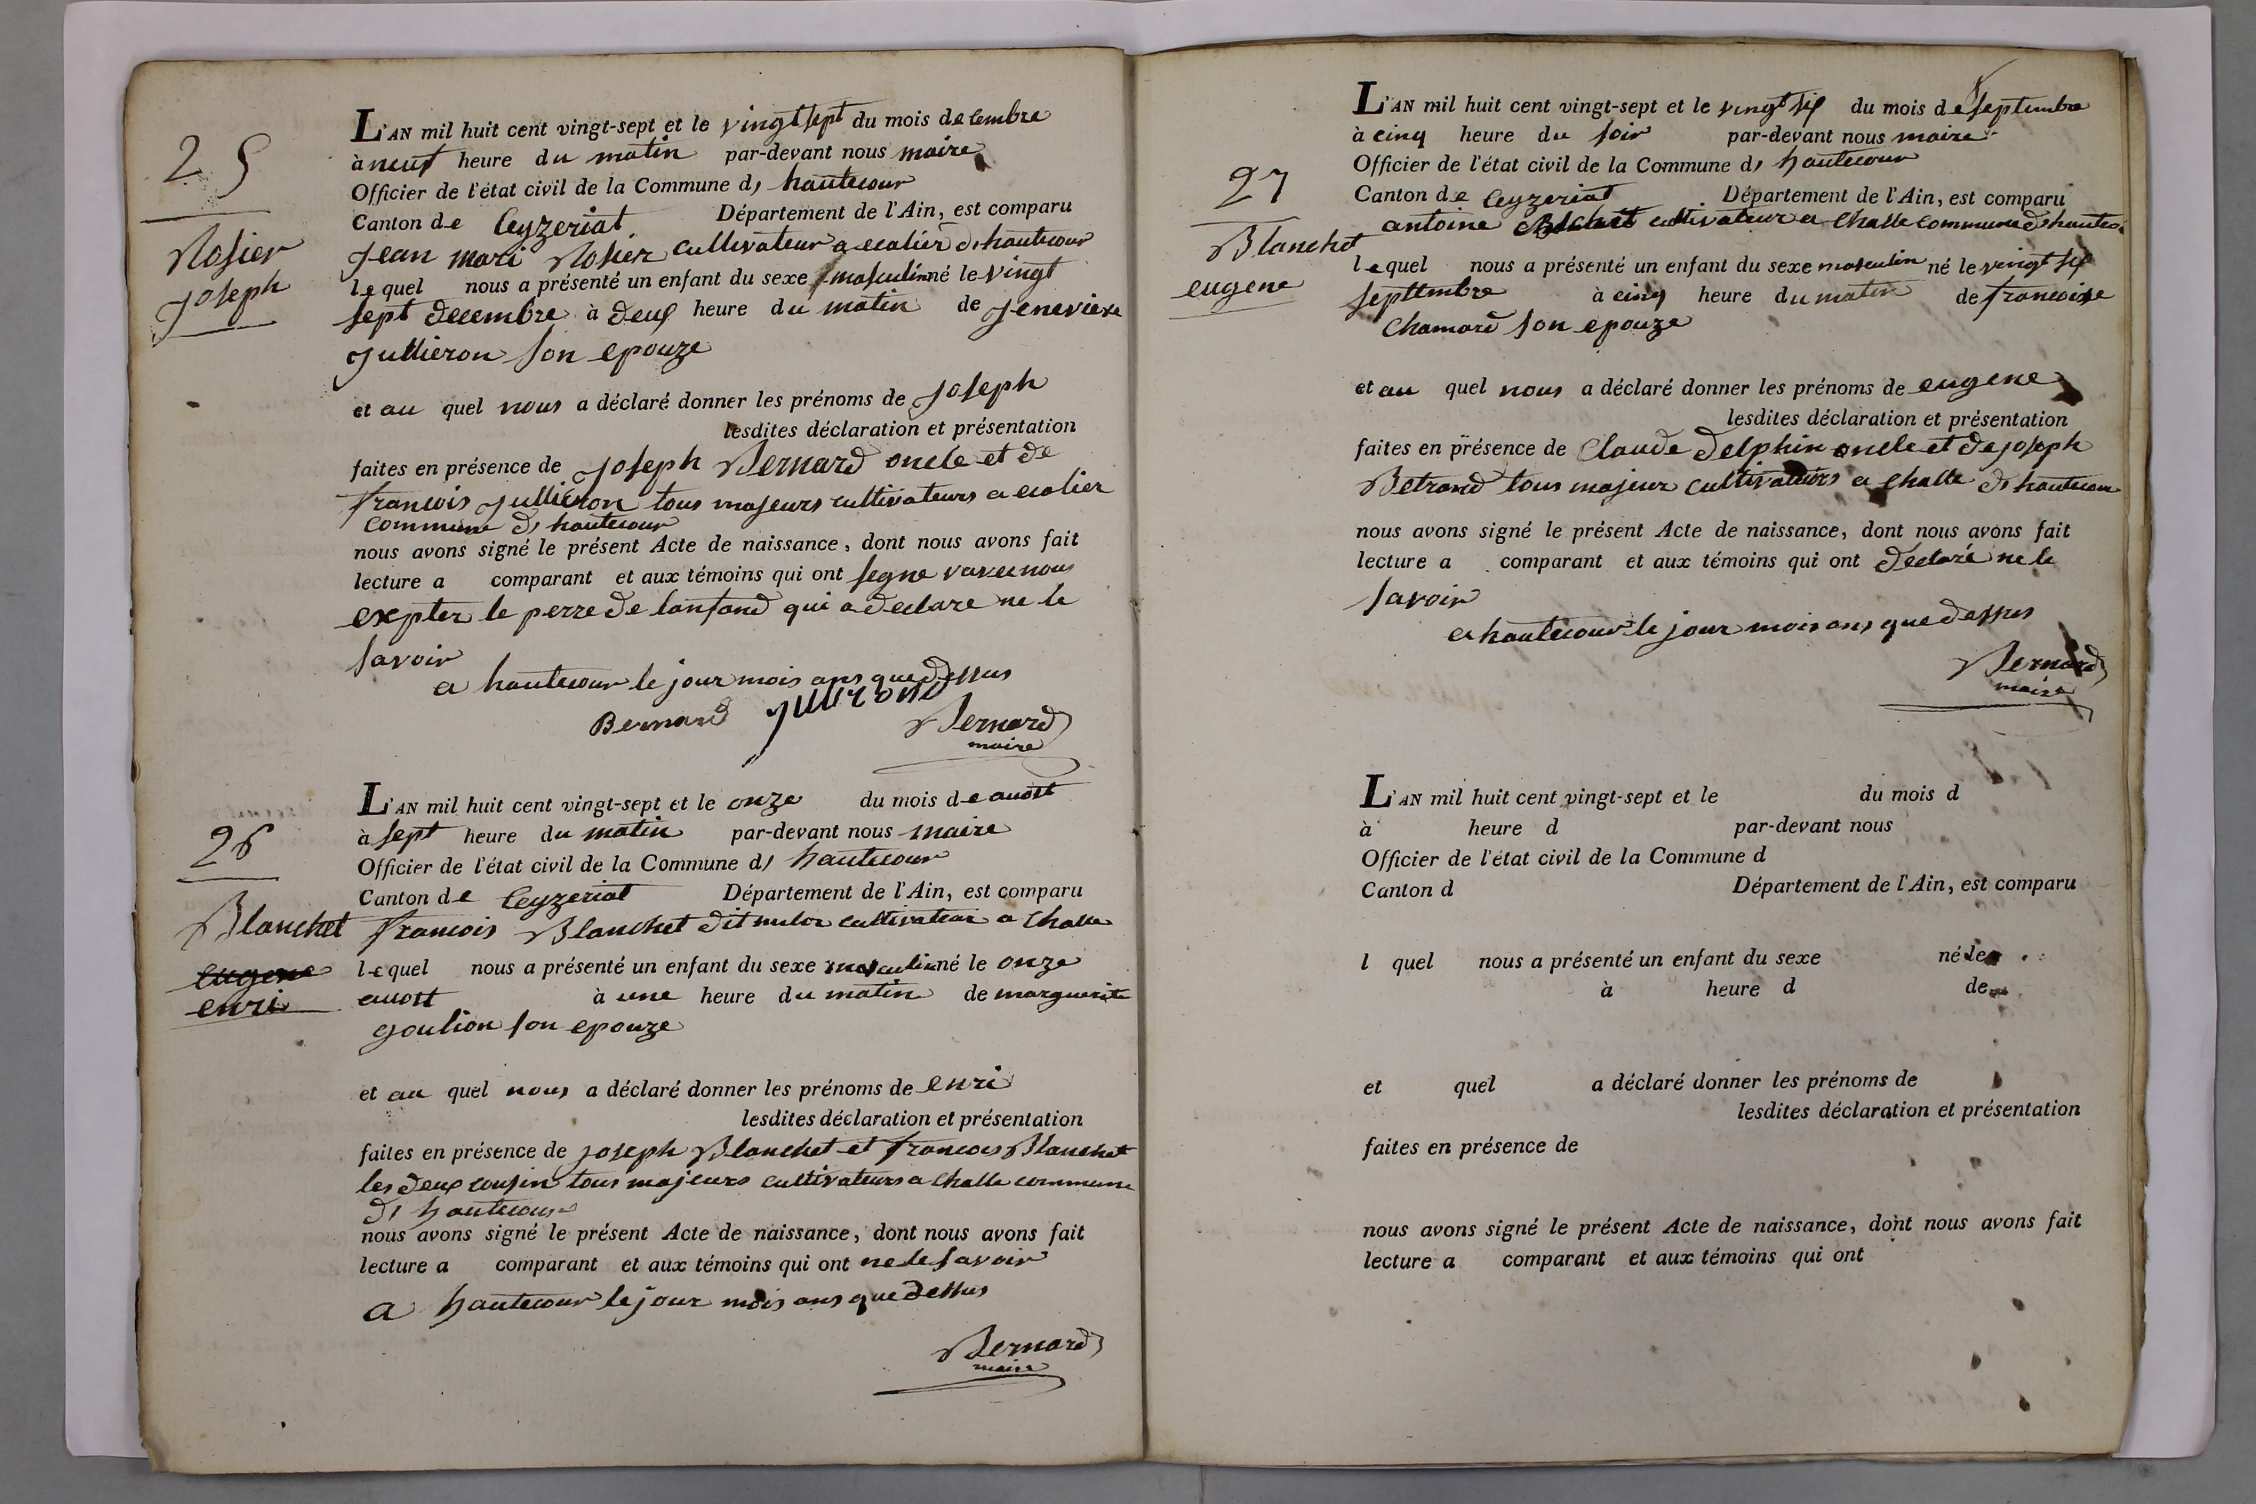 25
Rosier
Joseph
L'AN mil huit cent vingt-sept et le vingt sept du mois decembre
à neuf heure du matin par-devant nous maire
Officier de l'état civil de la Commune de hautecour
Canton de Ceyzeriat Département de l'Ain, est comparu
Jean mari Rosier cultivateur a ecolier de hautecour
lequel nous a présenté un enfant du sexe masculin né le vingt
sept decembre à deux heure du matin de Jenevieve
Jullieron son epouze
et au quel nous a déclaré donner les prénoms de Joseph
lesdites déclaration et présentation
faites en présence de Joseph Bernard oncle et de
francois Jullieron tous majeurs cultivateurs a ecolier
commune de hautecour
nous avons signé le présent Acte de naissance, dont nous avons fait
lecture a comparant et aux témoins qui ont segne avec nous
expter le perre de lanfand qui a declare ne le
savoir
a hautecour le jour mois ans que dessus
Bernard Bernard
maire
26
Blanchet
eugene
enri
L'AN mil huit cent vingt-sept et le onze du mois de auost
à sept heure du matin par-devant nous maire
Officier de l'état civil de la Commune de hautecour
Canton de Ceyzeriat Département de l'Ain, est comparu
francois Blanchet dit mulor cultivateur a Challe
lequel nous a présenté un enfant du sexe masculin né le onze
auost à une heure du matin de marguerite
goulion son epouze
et au quel nous a déclaré donner les prénoms de enri
lesdites déclaration et présentation
faites en présence de joseph Blanchet et francois Blanchet
les deux cousin tous majeurs cultivateurs a Challe commune
de hautecour
nous avons signé le présent Acte de naissance, dont nous avons fait
lecture a comparant et aux témoins qui ont ne le savoir
a hautecour le jour mois ans que dessus
Bernard
maire
27
Blanchet
eugene
L'AN mil huit cent vingt-sept et le vingt six du mois de septembre
à cinq heure du soir par-devant nous maire
Officier de l'état civil de la Commune de hautecour
Canton de Ceyzeriat Département de l'Ain, est comparu
antoine cultivateur a Challe commune de hauteco
lequel nous a présenté un enfant du sexe masculin né le vingt six
septtembre à cinq heure du matin de francoise
Chamard son epouze
et au quel nous a déclaré donner les prénoms de eugene
lesdites déclaration et présentation
faites en présence de Claude Delphin oncle et de joseph
Betrand tous majeur cultivateurs a Challe de hautecour
nous avons signé le présent Acte de naissance, dont nous avons fait
lecture a comparant et aux témoins qui ont declaré ne le
savoir
a hautecour le jour mois ans que dessus
Bernard
maire
L'AN mil huit cent vingt-sept et le du mois d
à heure d par-devant nous
Officier de l'état civil de la Commune d
Canton d Département de l'Ain, est comparu
l quel nous a présenté un enfant du sexe né le
à heure d de
et quel a déclaré donner les prénoms de
lesdites déclaration et présentation
faites en présence de
nous avons signé le présent Acte de naissance, dont nous avons fait
lecture a comparant et aux témoins qui ont